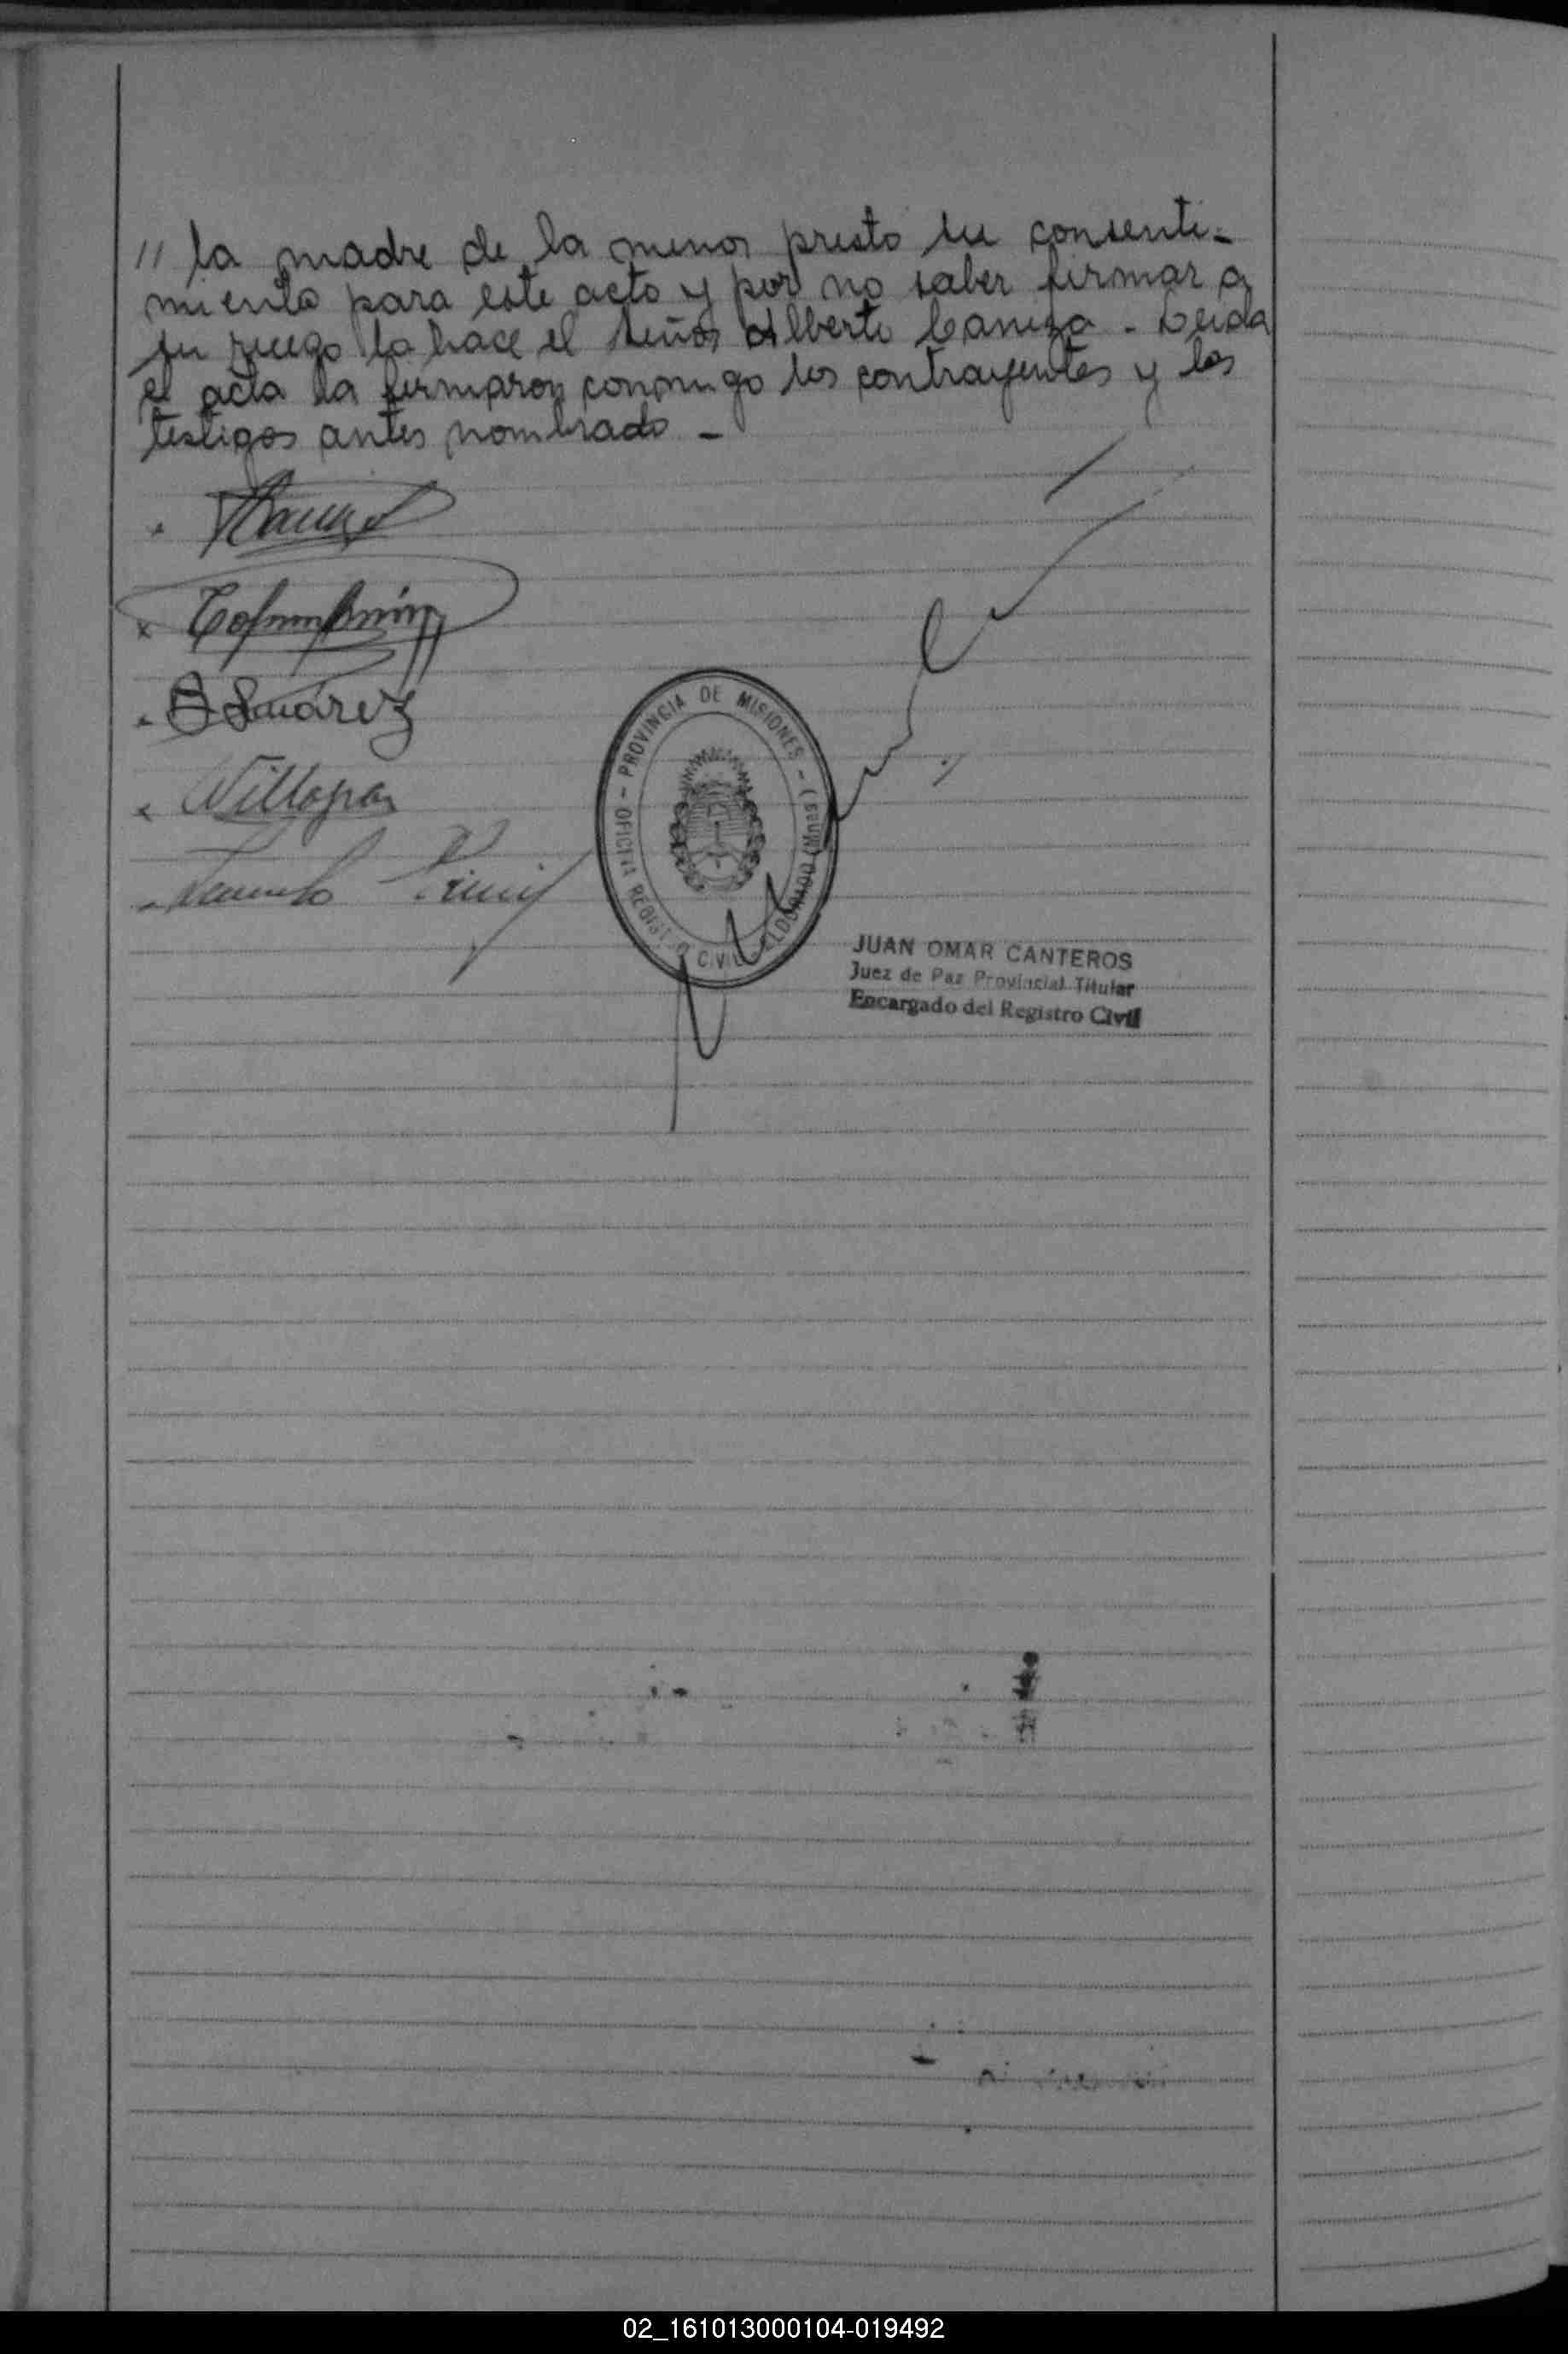 // la madre de la menor presto su consenti-
miento para este acto y por no saber firmar a
su ruego lo hace el señor Alberto Caniza - Leida
el acta la firmaron conmigo los contrayentes y los
testigos antes nombrado -
Suárez
Villagra
PROVINCIA DE MISIONES - OFICINA REGISTRO CIVIL ELDORADO (Mnes)
JUAN OMAR CANTEROS
Juez de Paz Provincial Titular
Encargado del Registro Civil
02_161013000104-019492